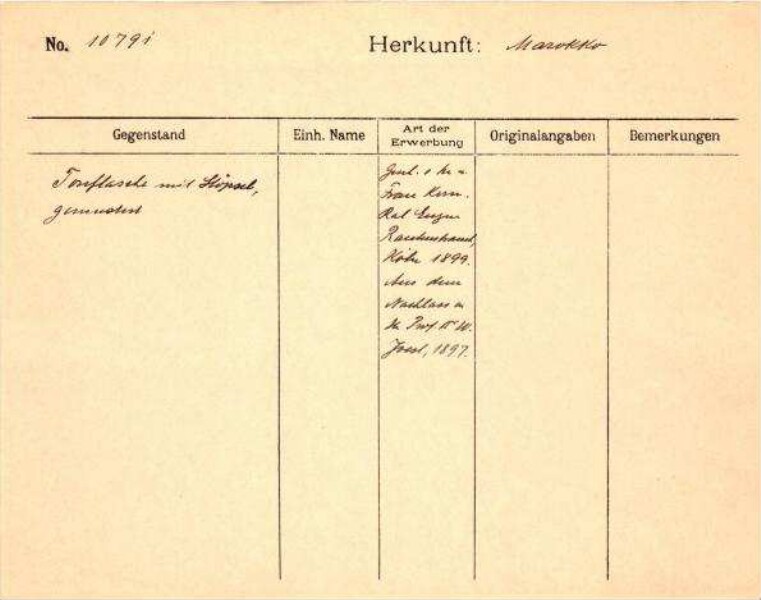 No. 1079i
Herkunft: Marokko
Gegenstand
Einh. Name
Art der
Erwerbung
Originalangaben
Bemerkungen
Tonflasche mit Stöpsel,
gemustert
Frau Kom.
Rat Eugen
Rautenstrauch,
Köln 1899.
Aus dem
Nachlass
Joest, 1897.